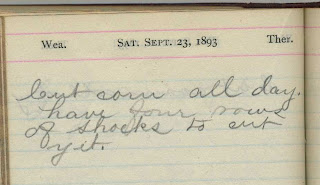 Wea. SAT. SEPT. 23, 1893 Ther.
Cut corn all day.
have four rows
of shocks to cut
yet.